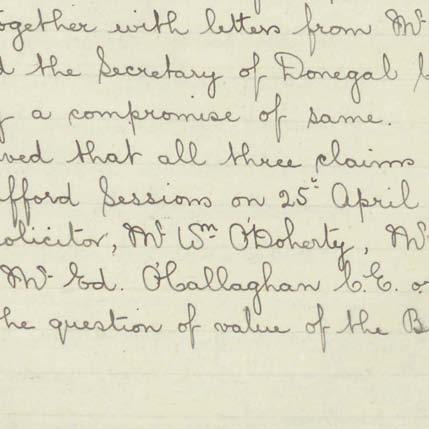 ogether with letters from Mr
d the Secretary of Donegal
a compromise of same.
ved that all three claims
fford Sessions on 25th April
olicitor, Mr Wm O'Doherty, Mr
Mr Ed. O'Callaghan C.E. o
he question of value of the B